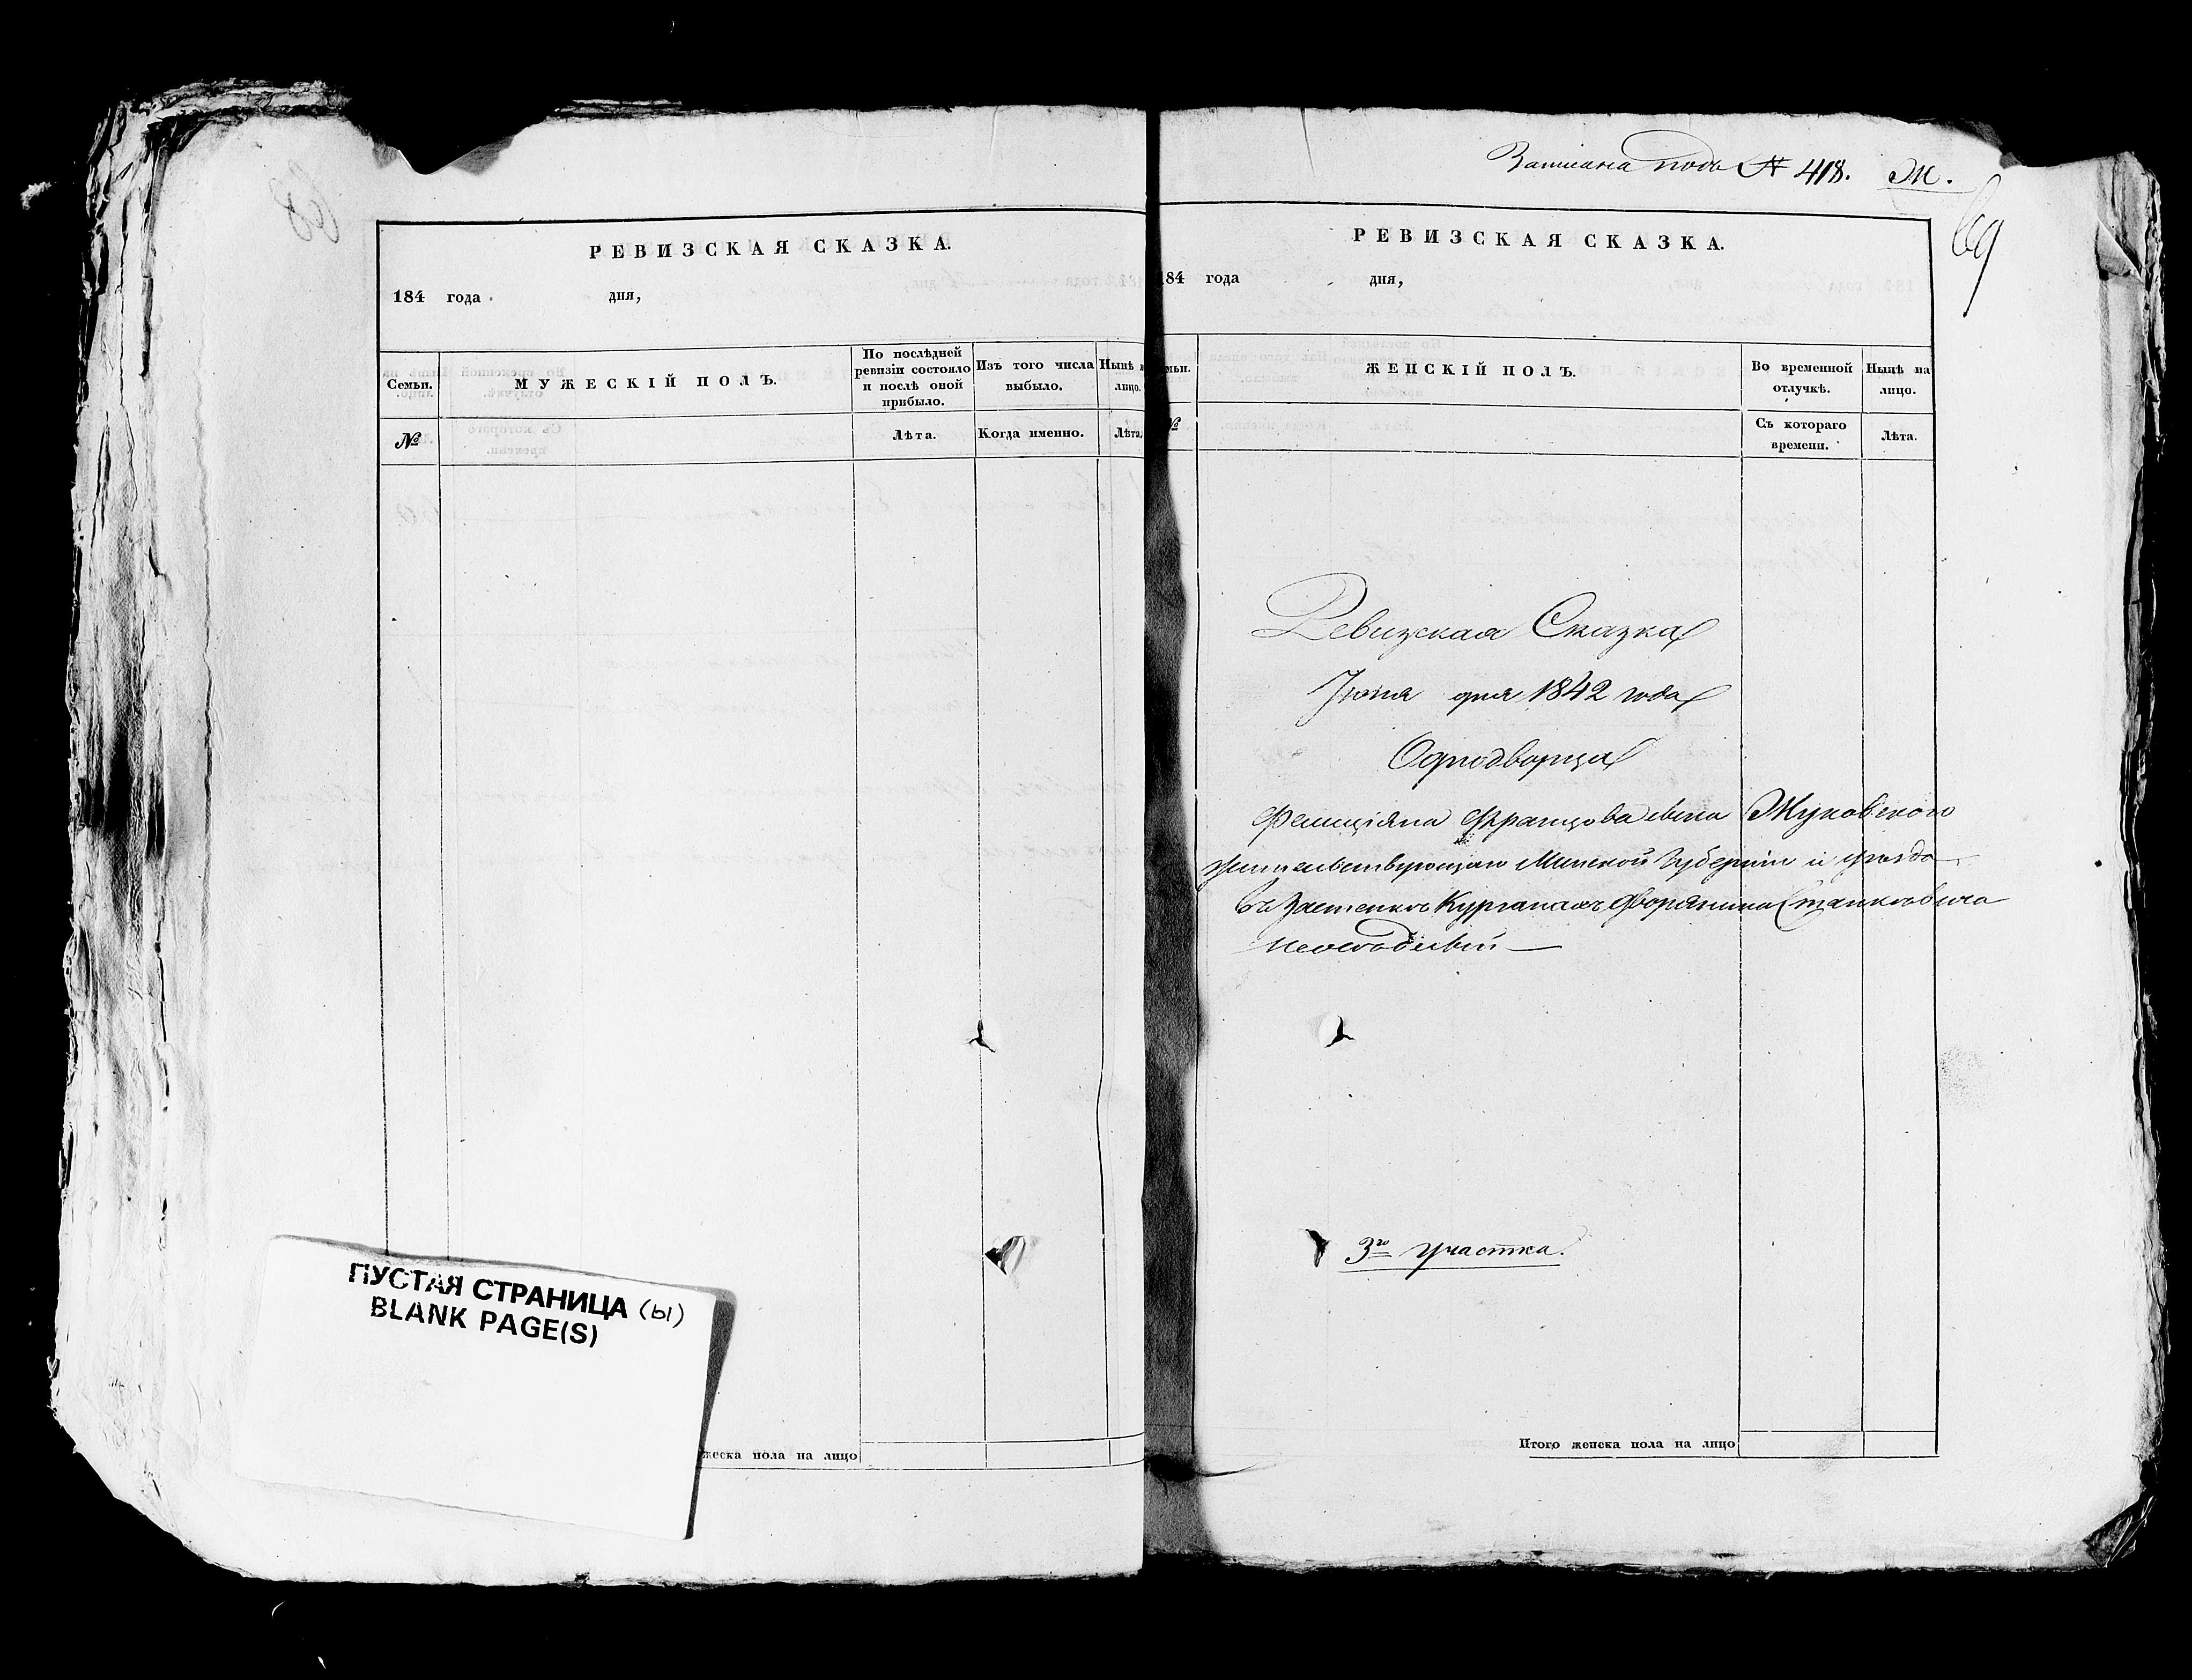 68
РЕВИЗСКАЯ СКАЗКА.
184 года дня,
Семьи.
МУЖЕСКІЙ ПОЛЪ.
По послѣдней ревизіи состояло и послѣ оной прибыло.
Изъ того числа выбыло.
Нынѣ
лицо.
№
Лѣта.
Когда именно.
Лѣта.
ПУСТАЯ СТРАНИЦА (Ы)
BLANK PAGE(S)
жеска пола на лицо
Записана подъ № 418. Ж.
69
РЕВИЗСКАЯ СКАЗКА.
184 года дня,
мьи.
ЖЕНСКІЙ ПОЛЪ.
Во временной отлучкѣ.
Нынѣ на лицо.
№
Съ котораго времени.
Лѣта.
Ревизская Сказка
Іюня дня 1842 года
Однодворца
Фелиціана Францова сына Жуковского
жительствующаго Минской Губерніи и уѣзда
въ Застенкѣ Курганахъ дворянина Станкевича
3го участка.
Итого женска пола на лицо